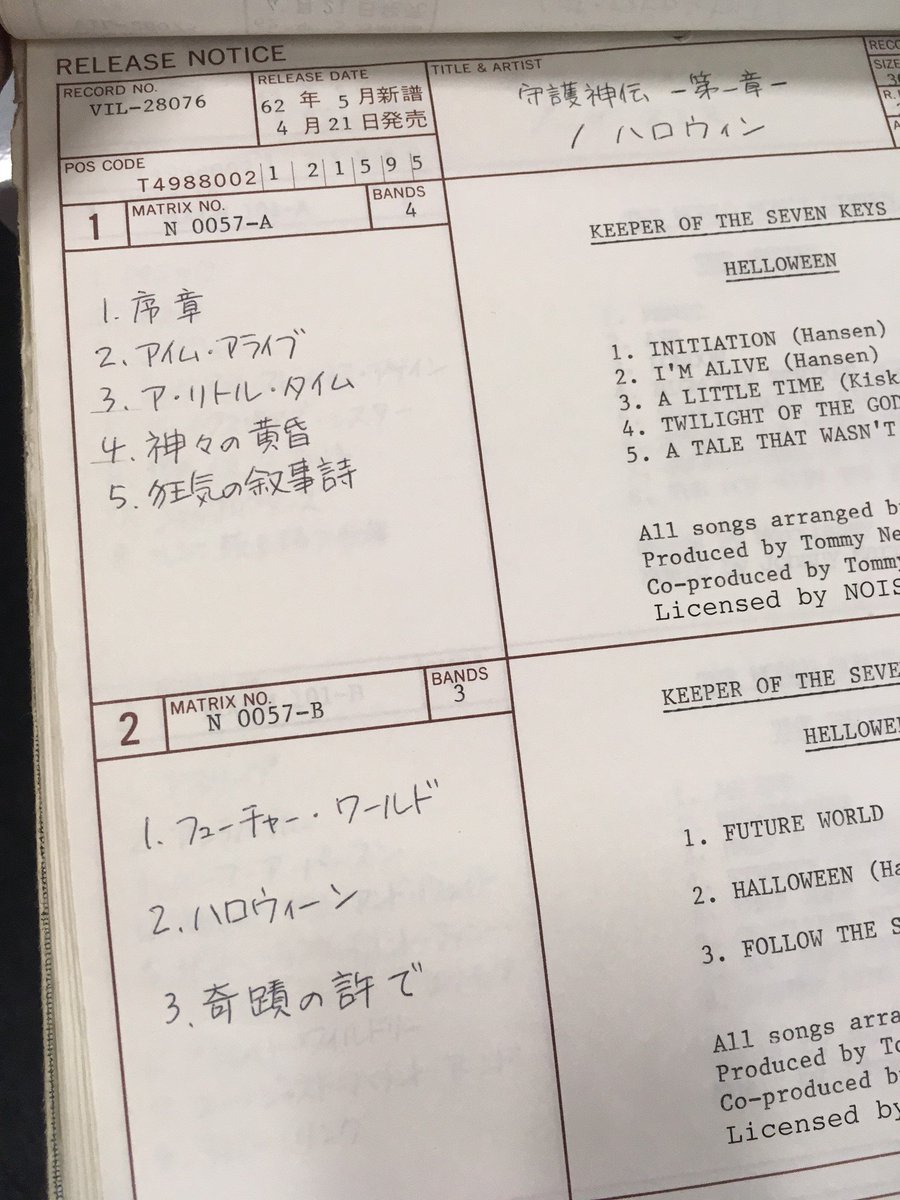 RELEASE NOTICE
RECORD NO.
VIL-28076
RELEASE DATE
62 年 5 月新譜
4 月 21 日発売
TITLE & ARTIST
守護神伝 -第一章-
/ ハロウィン
POS CODE
T4988002 1 2 1 5 9 5
1
MATRIX NO.
N 0057-A
BANDS
4
1. 序章
2. アイム・アライブ
3. ア・リトル・タイム
4. 神々の黄昏
5. 狂気の叙事詩
KEEPER OF THE SEVEN KEYS
HELLOWEEN
1. INITIATION (Hansen)
2. I'M ALIVE (Hansen)
3. A LITTLE TIME (Kisk
4. TWILIGHT OF THE GOD
5. A TALE THAT WASN'T
All songs arranged by
Produced by Tommy Ne
Co-produced by Tommy
Licensed by NOIS
2
MATRIX NO.
N 0057-B
BANDS
3
1. フューチャー・ワールド
2. ハロウィーン
3. 奇蹟の許で
KEEPER OF THE SEVE
HELLOWEE
1. FUTURE WORLD
2. HALLOWEEN (Ha
3. FOLLOW THE S
All songs arra
Produced by To
Co-produced b
Licensed by